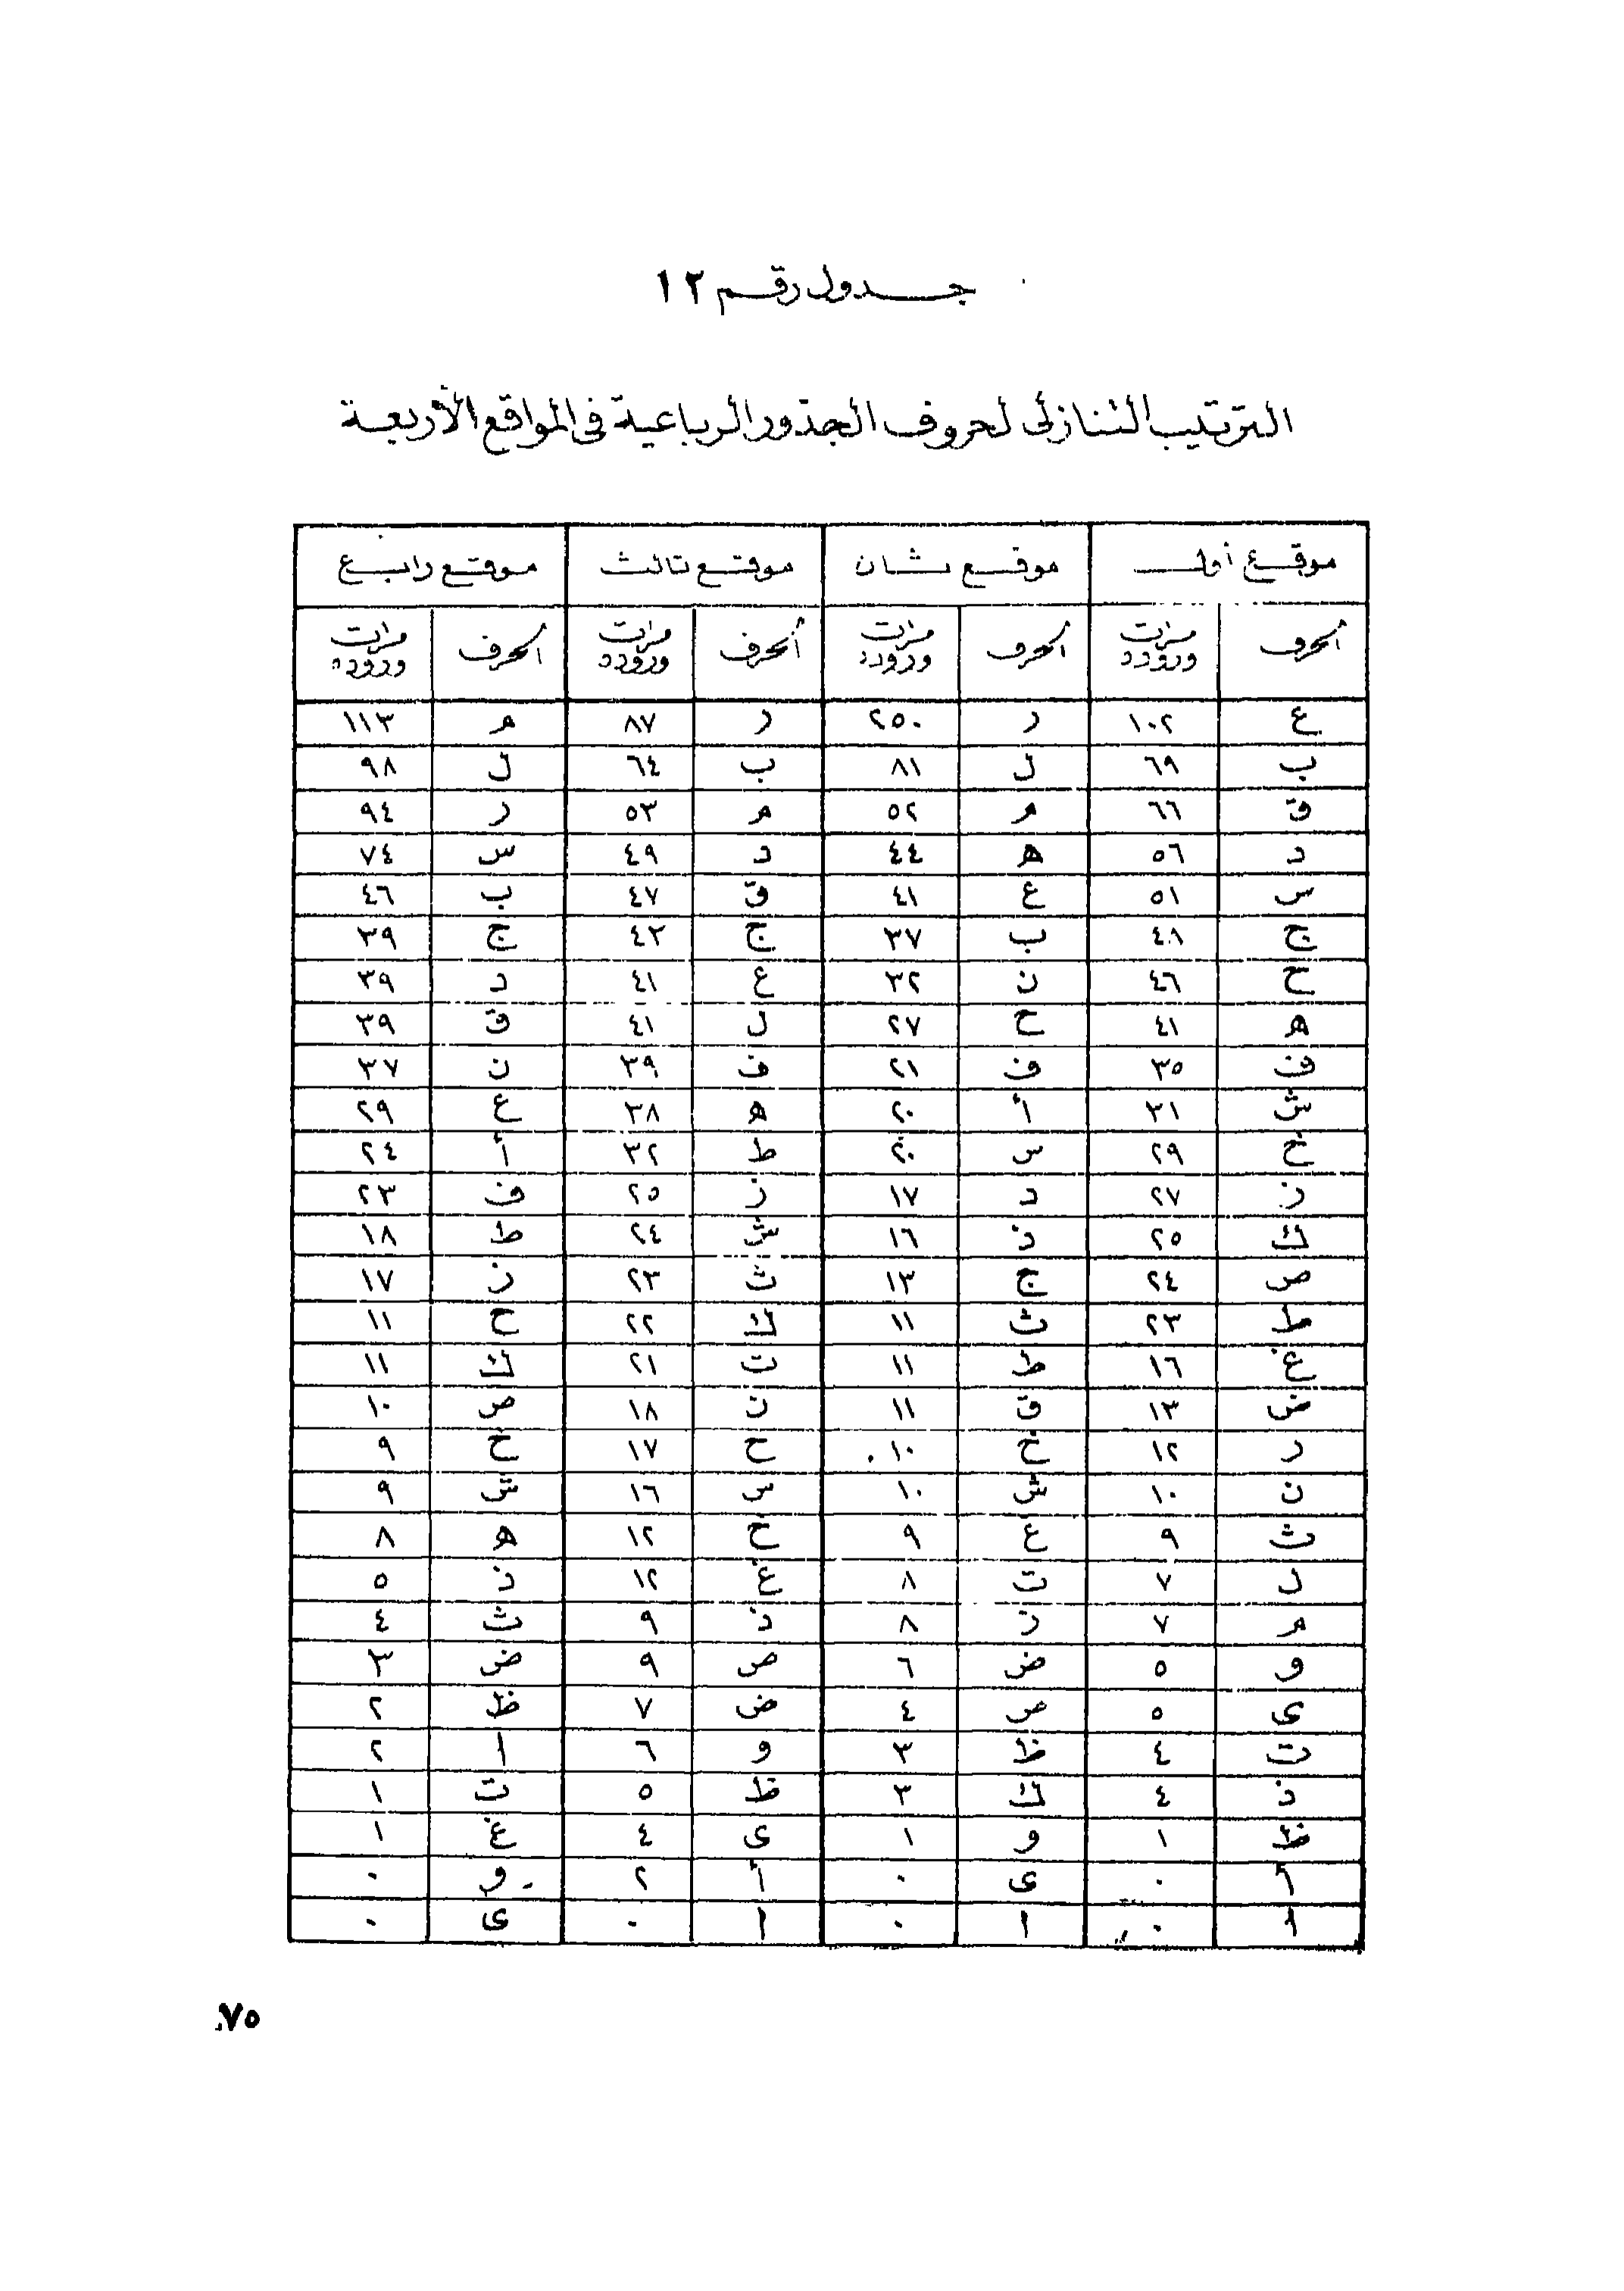 جدول رقم ١٢
الترتيب التنازلى لحروف الجذور الرباعية فى المواقع الأربعة
موقع أول موقع ثان موقع ثالث موقع رابع
الحرف مرات وروده الحرف مرات وروده الحرف مرات وروده الحرف مرات وروده
ع ١٠٢ ر ٢٥٠ ر ٨٧ م ١١٣
ب ٦٩ ل ٨١ ب ٦٤ ل ٩٨
ق ٦٦ م ٥٢ م ٥٣ ر ٩٤
د ٥٦ ه ٤٤ د ٤٩ س ٧٤
س ٥١ ع ٤١ ق ٤٧ ب ٤٦
ج ٤٨ ب ٣٧ ج ٤٣ ج ٣٩
ح ٤٦ ن ٣٢ ع ٤١ د ٣٩
ه ٤١ ح ٢٧ ل ٤١ ق ٣٩
ف ٣٥ ف ٢١ ف ٣٩ ن ٣٧
ش ٣١ أ ٢٠ ه ٣٨ ع ٢٩
خ ٢٩ س ٢٠ ط ٣٢ أ ٢٤
ز ٢٧ د ١٧ ز ٢٥ ف ٢٣
ك ٢٥ ذ ١٦ ش ٢٤ ط ١٨
ص ٢٤ ج ١٣ ث ٢٣ ز ١٧
ط ٢٣ ث ١١ ك ٢٢ ح ١١
غ ١٦ ط ١١ ت ٢١ ك ١١
ض ١٣ ق ١١ ن ١٨ ص ١٠
ر ١٢ خ ١٠ ح ١٧ خ ٩
ن ١٠ ش ١٠ س ١٦ ش ٩
ث ٩ غ ٩ خ ١٢ ه ٨
ل ٧ ت ٨ غ ١٢ ذ ٥
م ٧ ز ٨ ذ ٩ ث ٤
و ٥ ض ٦ ص ٩ ض ٣
ى ٥ ص ٤ ض ٧ ظ ٢
ت ٤ ظ ٣ و ٦ ا ٢
ذ ٤ ك ٣ ظ ٥ ت ١
ظ ١ و ١ ى ٤ غ ١
أ ٠ ى ٠ أ ٢ و ٠
ا ٠ ا ٠ ا ٠ ى ٠
٧٥